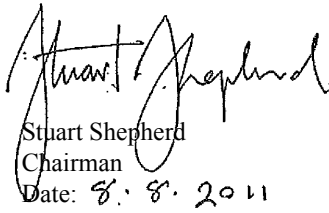 Stuart Shepherd
Stuart Shepherd
Chairman
Date: 8. 8. 2011